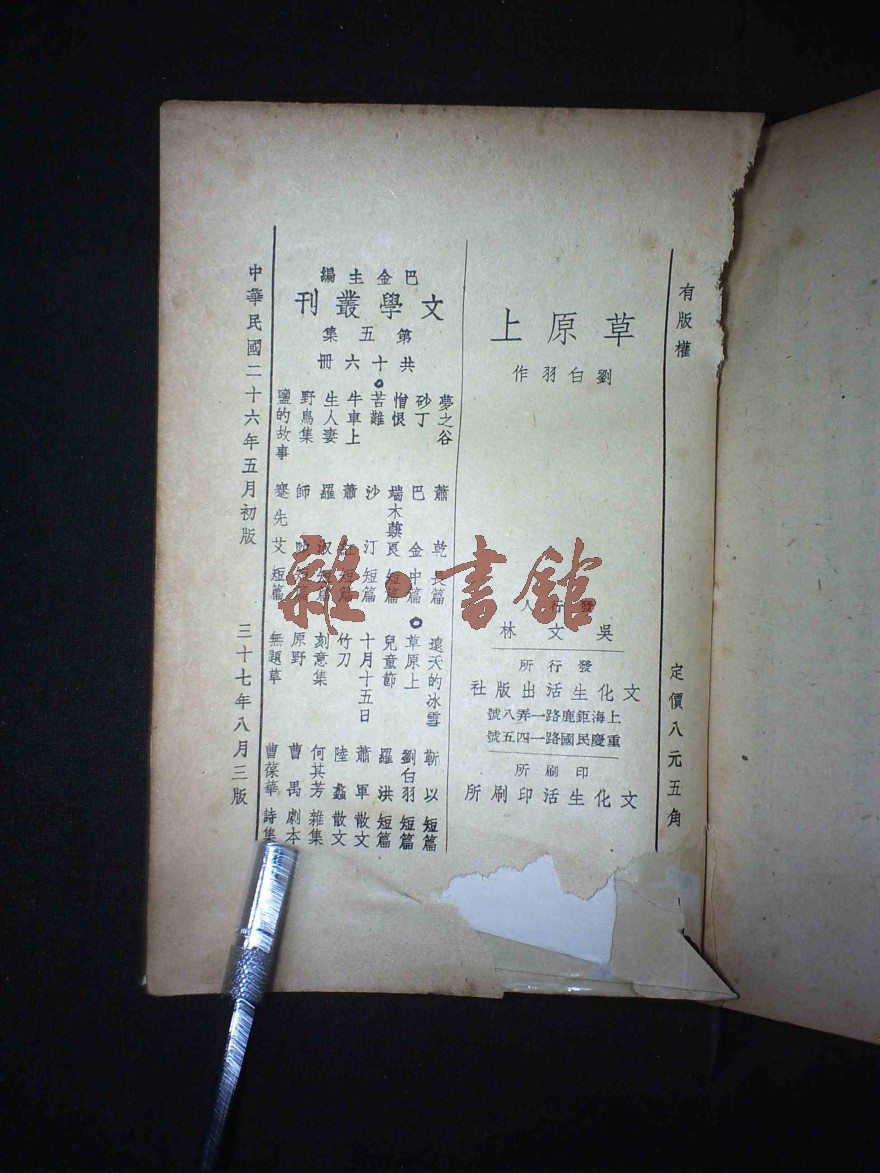 有版權
定價八元五角
草原上
劉白羽作
發行人
吳文林
發行所
文化生活出版社
上海鉅鹿路一弄八號
重慶民國路一四五號
印刷所
文化生活印刷所
巴金主編
文學叢刊
第五集
共十六冊
夢之谷 蕭乾 長篇
砂丁 巴金 中篇
憎恨 端木蕻良 短篇
苦難 沙汀 短篇
牛車上 蕭紅 短篇
生人妻 羅淑 短篇
野鳥集 師陀 短篇
鹽的故事 蹇先艾 短篇
遠天的冰雪 靳以 短篇
草原上 劉白羽 短篇
兒童節 羅洪 短篇
十月十五日 蕭軍 散文
竹刀 陸蠡 散文
刻意集 何其芳 雜集
原野 曹禺 劇本
無題草 曹葆華 詩集
中華民國二十六年五月初版
三十七年八月三版
雜·書館